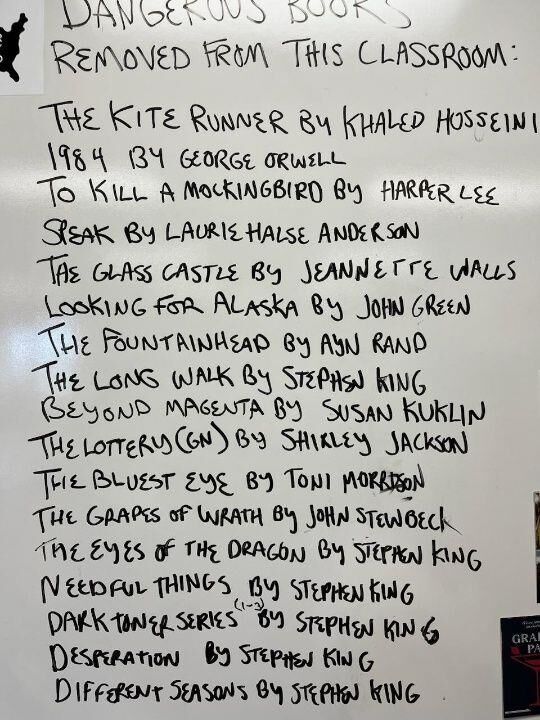 DANGEROUS BOOKS
REMOVED FROM THIS CLASSROOM:
THE KITE RUNNER BY KHALED HOSSEINI
1984 BY GEORGE ORWELL
TO KILL A MOCKINGBIRD BY HARPER LEE
SPEAK BY LAURIE HALSE ANDERSON
THE GLASS CASTLE BY JEANNETTE WALLS
LOOKING FOR ALASKA BY JOHN GREEN
THE FOUNTAINHEAD BY AYN RAND
THE LONG WALK BY STEPHEN KING
BEYOND MAGENTA BY SUSAN KUKLIN
THE LOTTERY (GN) BY SHIRLEY JACKSON
THE BLUEST EYE BY TONI MORRISON
THE GRAPES OF WRATH BY JOHN STEINBECK
THE EYES OF THE DRAGON BY STEPHEN KING
NEEDFUL THINGS BY STEPHEN KING
DARK TOWER SERIES (1-3) BY STEPHEN KING
DESPERATION BY STEPHEN KING
DIFFERENT SEASONS BY STEPHEN KING